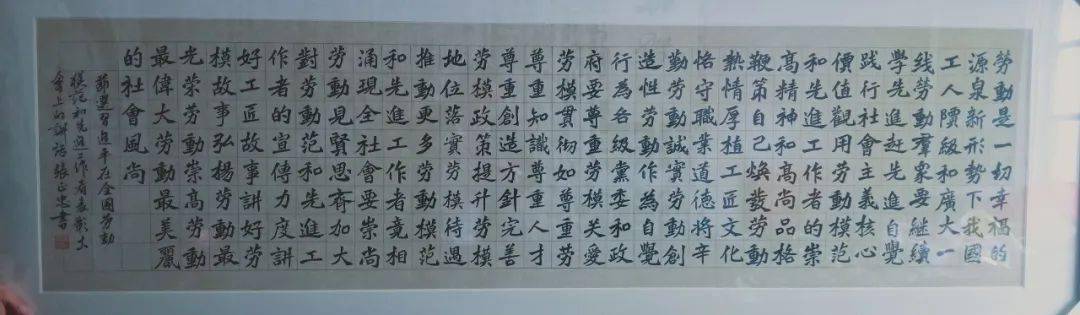 勞動是一切幸福的
源泉新形勢下我國
工人階級和廣大一
线勞動羣衆要继續
學先進赶先進自覺
践行社會主義核心
價值觀用勞動模范
和先進工作者的崇
高精神和高尚品格
鞭策自己焕發勞動
熱情厚植工匠文化
恪守職業道德將辛
勤勞動誠實勞動創
造性勞動作為自覺
行為各級黨委和政
府要尊重勞模关愛
勞模貫彻好尊重勞
尊重知識尊重人才
尊重創造方針完善
勞模政策提升勞模
地位落實勞模待遇
推動更多勞動模范
和先進工作者竞相
涌現全社會要崇尚
勞動見賢思齊加大
對勞動范和先進工
作者的宣傳力度讲
好工匠故事讲好勞
模故事弘揚勞動最
光荣勞動崇高勞動
最偉大勞動最美麗
的社會風尚
節選習近平在全國劳動
模范和先進工作者表彰大
會上的讲话 張正忠書